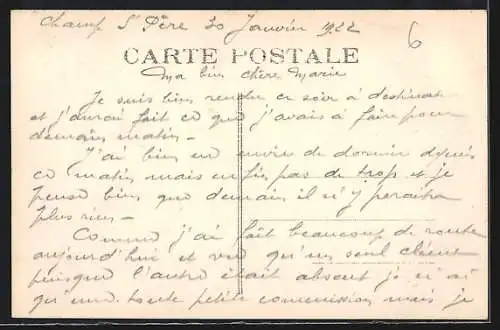 Champ St Père 30 Janvier 1922
6
CARTE POSTALE
Ma bien chère Marie
Je suis bien rendu ce soir à destinat
et j'aurai fait ce que j'avais à faire pour
demain matin -
J'ai bien eu envies de dormir depuis
ce matin mais enfin pas de trop et je
pense bien que demain il n'y paraitra
plus rien -
Comme j'ai fait beaucoup de route
aujourd'hui et vu qu'un seul client
puisque l'autre était absent je n'ai
qu'une toute petite commission mais je